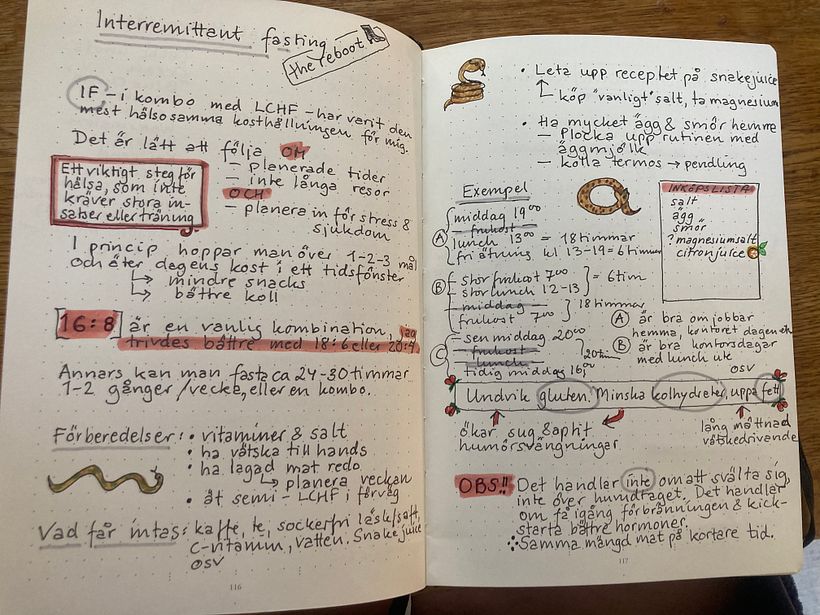 Interremittant fasting
the reboot
IF - i kombo med LCHF - har varit den
mest hälsosamma kosthållningen för mig.
Det är lätt att följa OM
- planerade tider
- inte långa resor
OCH
- planera in för stress &
sjukdom
Ett viktigt steg för
hälsa, som inte
kräver stora in-
satser eller träning
I princip hoppar man över 1-2-3 mål
och äter dagens kost i ett tidsfönster
↳ mindre snacks
↳ bättre koll
16:8 är en vanlig kombination, jag
trivdes bättre med 18:6 eller 20:4
Annars kan man fasta ca 24-30 timmar
1-2 gånger/vecka, eller en kombo.
Förberedelser: • vitaminer & salt
• ha vätska till hands
• ha lagad mat redo
↳ planera veckan
• ät semi-LCHF i förväg
Vad får intas: kaffe, te, sockerfri läsk/saft,
C-vitamin, vatten. Snakejuice
osv
116
• Leta upp receptet på snakejuice
köp "vanligt" salt, ta magnesium
• Ha mycket ägg & smör hemma
- Plocka upp rutinen med
äggmjölk
- kolla termos → pendling
Exempel
A
middag 19⁰⁰
- frukost -
lunch 13⁰⁰ = 18 timmar
fri ätning kl 13-19 = 6 timmar
B
- stor frukost 7⁰⁰
- stor lunch 12-13
= 6 tim
- middag -
frukost 7⁰⁰
18 timmar
C
- sen middag 20⁰⁰
- frukost -
- lunch -
tidig middag 16⁰⁰
20 tim
INKÖPSLISTA
salt
ägg
smör
? magnesiumsalt
citronjuice
A är bra om jobbar
hemma, kontoret dagen
B är bra kontorsdagar
med lunch ute
osv
Undvik gluten. Minska kolhydrater, uppa fett
ökar sug & aptit
humörsvängningar
lång mättnad
vätskedrivande
OBS!! Det handlar inte om att svälta sig,
inte över huvudtaget. Det handlar
om få igång förbränningen & kick-
starta bättre hormoner.
Samma mängd mat på kortare tid.
117